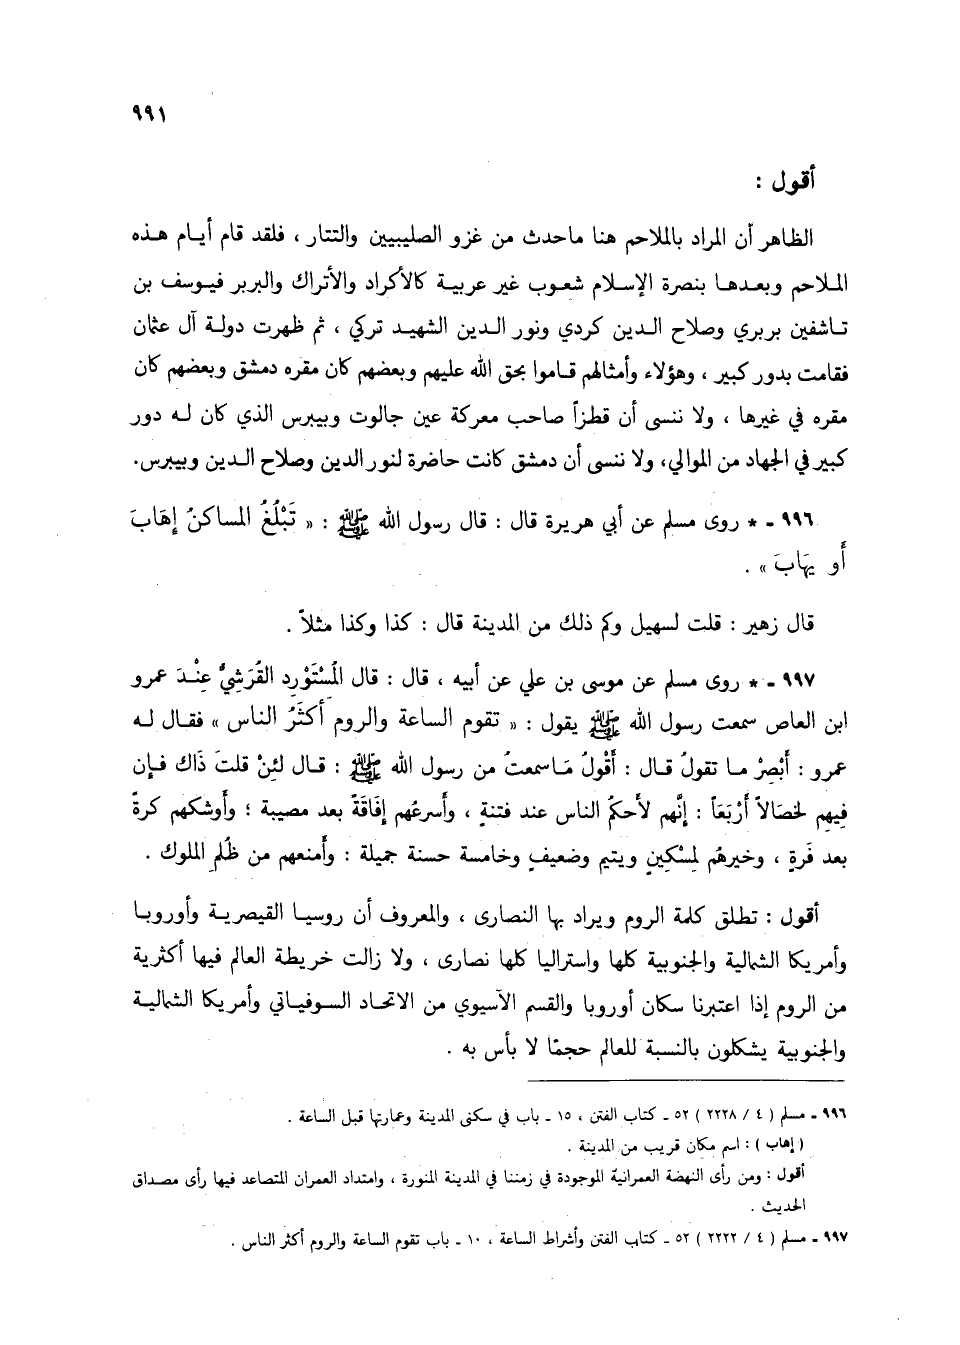 ٩٩١
أقول :
الظاهر أن المراد بالملاحم هنا ماحدث من غزو الصليبيين والتتار ، فلقد قام أيـام هـذه
المـلاحم وبعـدهـا بنصرة الإسـلام شعوب غير عربيـة كالأكراد والأتراك والبربر فيـوسف بن
تـاشفين بربري وصلاح الـدين كردي ونور الـدين الشهيـد تركي ، ثم ظهرت دولـة آل عثمان
فقامت بدور كبير ، وهؤلاء وأمثالهم قـاموا بحق الله عليهم وبعضهم كان مقره دمشق وبعضهم كان
مقره في غيرها ، ولا ننسى أن قطزاً صاحب معركة عين جالوت وبيبرس الذي كان لـه دور
كبير في الجهاد من الموالي، ولا ننسى أن دمشق كانت حاضرة لنور الدين وصلاح الـدين وبيبرس.
٩٩٦ - * روى مسلم عن أبي هريرة قال : قال رسول الله ﷺ : « تَبْلُغُ المساكنُ إهَابَ
أو يَهَابَ » .
قال زهير : قلت لسهيل وكم ذلك من المدينة قال : كذا وكذا مثلاً .
٩٩٧ - * روى مسلم عن موسى بن علي عن أبيه ، قال : قال المُسْتَوْرِد القُرَشِيُّ عِنْـدَ عمرو
ابن العاص سمعت رسول الله ﷺ يقول : « تقوم الساعة والروم أكثَرُ الناس » فقـال لـه
عمرو : أَبْصِرْ مـا تقولُ قـال : أَقُولُ مَـاسمعتُ من رسول الله ﷺ : قـال لئِنْ قلتَ ذَاك فـإن
فِيهِم لخِصَالاً أَرْبَعَاً : إنَّهم لأحكمُ الناس عند فتنةٍ ، وأسرعُهم إفَاقَةً بعد مصيبة ؛ وأوشكهم كرةً
بعد فَرةٍ ، وخيرهُم لمِسْكِينٍ ويتيم وضعيفٍ وخامسة حسنة جميلة : وأمنعهم من ظُلمِ الملوك .
أقول : تطلق كلمة الروم ويراد بها النصارى ، والمعروف أن روسيـا القيصريـة وأوروبـا
وأمريكا الشمالية والجنوبية كلها واستراليا كلها نصارى ، ولا زالت خريطة العالم فيها أكثرية
من الروم إذا اعتبرنا سكان أوروبا والقسم الآسيوي من الاتحـاد السـوفيـاتي وأمريكـا الشماليـة
والجنوبية يشكلون بالنسبة للعالم حجمًا لا بأس به .
٩٩٦ - مسلم ( ٤ / ٢٢٢٨ ) ٥٢ - كتاب الفتن ، ١٥ - باب في سكنى المدينة وعمارتها قبل الساعة .
( إهاب ) : اسم مكان قريب من المدينة .
أقول : ومن رأى النهضة العمرانية الموجودة في زمننا في المدينة المنورة ، وامتداد العمران المتصاعد فيها رأى مصـداق
الحديث .
٩٩٧ - مسلم ( ٤ / ٢٢٢٢ ) ٥٢ - كتاب الفتن وأشراط الساعة ، ١٠ - باب تقوم الساعة والروم أكثر الناس .